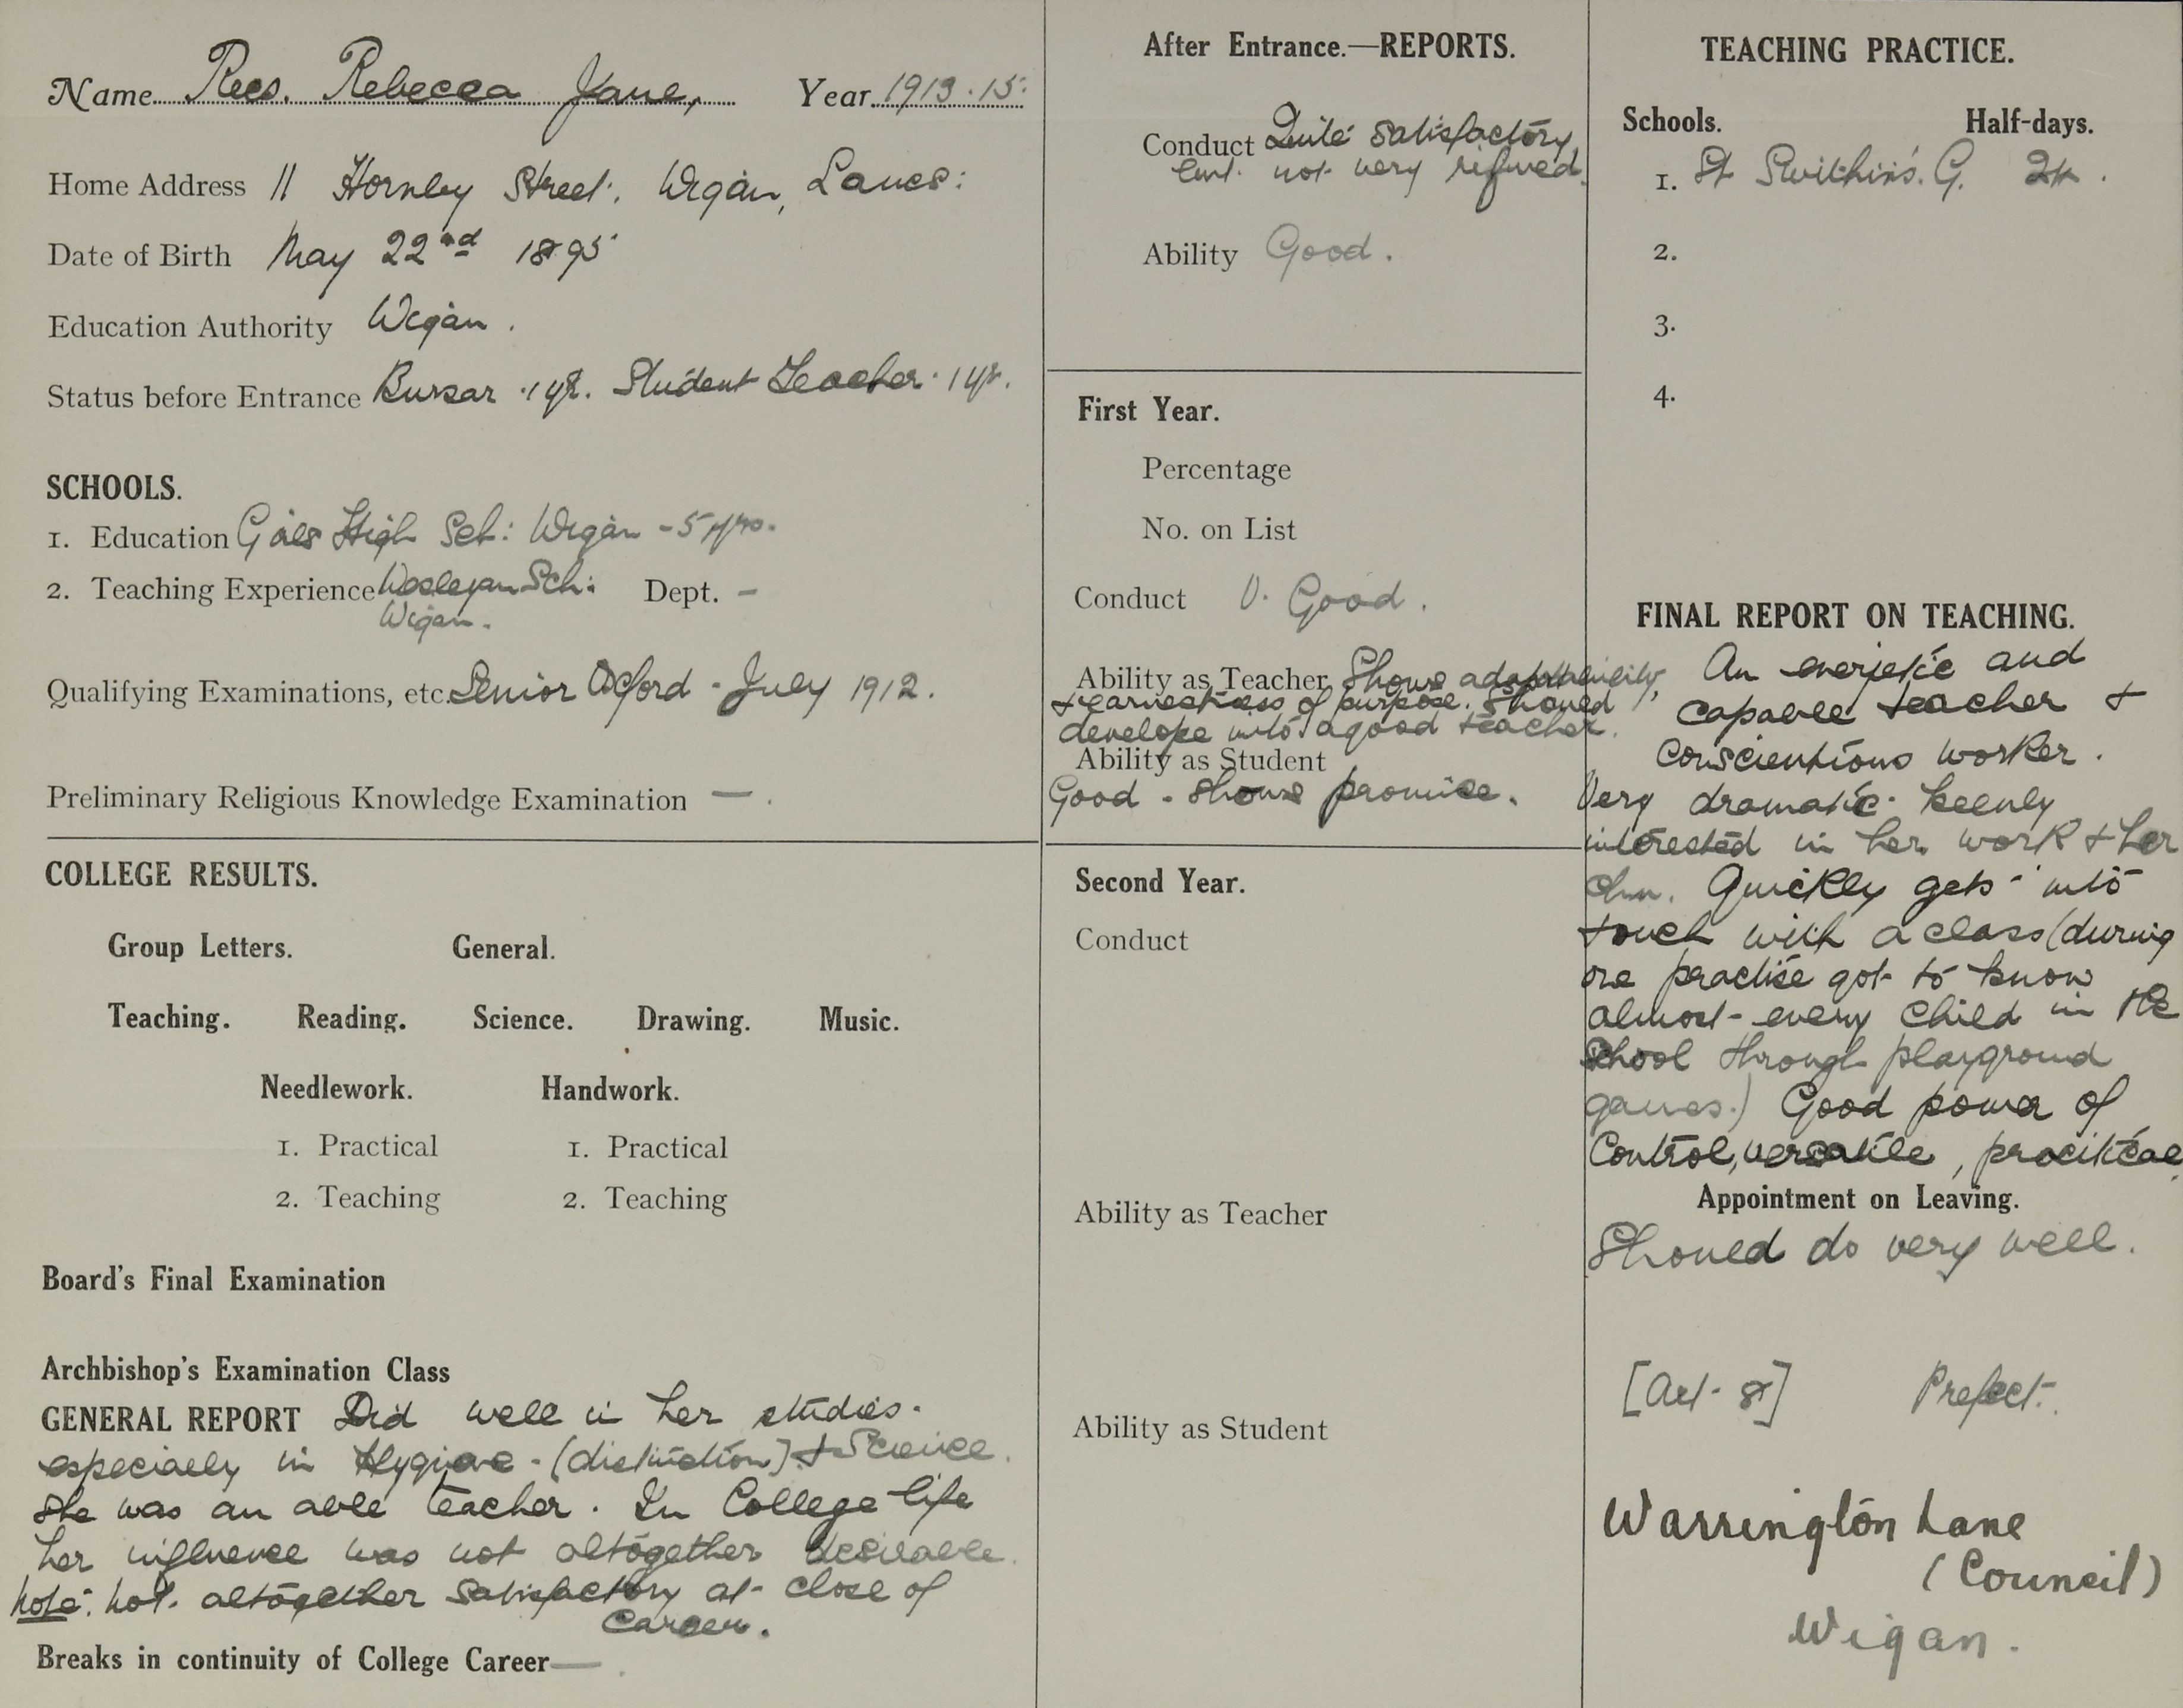 Name Rees. Rebecca Jane, Year 1913.15.
Home Address 11 Hornby Street, Wigan, Lancs:
Date of Birth May 22nd 1895
Education Authority Wigan.
Status before Entrance Bursar . 1 yr. Student Teacher . 1 yr.
SCHOOLS.
1. Education Girls High Sch: Wigan - 5 yrs.
2. Teaching Experience Wesleyan Sch: Dept. -
Wigan.
Qualifying Examinations, etc. Senior Oxford - July 1912.
Preliminary Religious Knowledge Examination — .
COLLEGE RESULTS.
Group Letters. General.
Teaching. Reading. Science. Drawing. Music.
Needlework. Handwork.
1. Practical 1. Practical
2. Teaching 2. Teaching
Board's Final Examination
Archbishop's Examination Class
GENERAL REPORT Did well in her studies.
especially in Hygiene - (distinction) & Science.
She was an able teacher. In College life
her influence was not altogether desirable.
Note: Not altogether satisfactory at close of
Career.
Breaks in continuity of College Career — .
After Entrance.—REPORTS.
Conduct Quite satisfactory
but not very refined.
Ability Good.
First Year.
Percentage
No. on List
Conduct V. Good.
Ability as Teacher Shows adaptability,
& earnestness of purpose. Should
develope into a good teacher.
Ability as Student
Good - Shows promise.
Second Year.
Conduct
Ability as Teacher
Ability as Student
TEACHING PRACTICE.
Schools. Half-days.
1. St Swithin's. G. 24.
2.
3.
4.
FINAL REPORT ON TEACHING.
An energetic and
capable teacher &
conscientious worker.
Very dramatic. keenly
interested in her work & her
chn. Quickly gets into
touch with a class (during
one practise got to know
almost every child in the
school through playground
games.) Good power of
Control, versatile, practical
Appointment on Leaving.
Should do very well.
Prefect.
Warrington Lane
(Council)
Wigan.